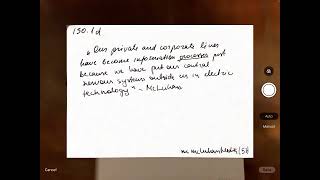 150.1d
„Our private and corporate lives
have become information processes just
because we have put our central
nervous systems outside us in electric
technology" - McLuhan
Auto
Manual
Cancel
Save